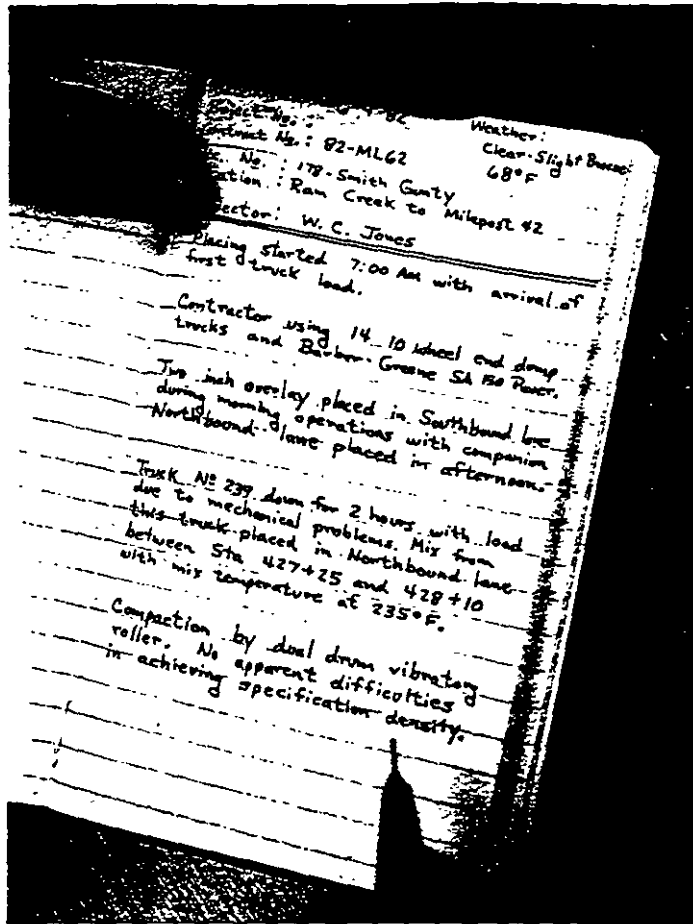 -82
Weather:
Project No. :
Clear-Slight Breeze
Contract No. : 82-ML62
68°F
No. : 178-Smith County
ation : Ram Creek to Milepost 42
ector: W. C. Jones
Placing started 7:00 AM with arrival of
first truck load.
Contractor using 14 10 wheel end dump
trucks and Barber-Greene SA 150 Paver.
Two inch overlay placed in Southbound lane
during morning operations with companion
Northbound lane placed in afternoon.
Truck No 239 down for 2 hours with load
due to mechanical problems. Mix from
this truck placed in Northbound lane
between Sta 427+25 and 428+10
with mix temperature at 235°F.
Compaction by dual drum vibratory
roller. No apparent difficulties
in achieving specification density.